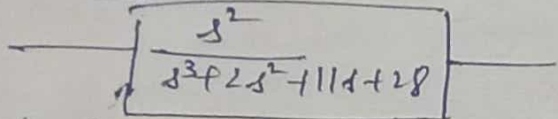 s²
s³+2s²+11s+28